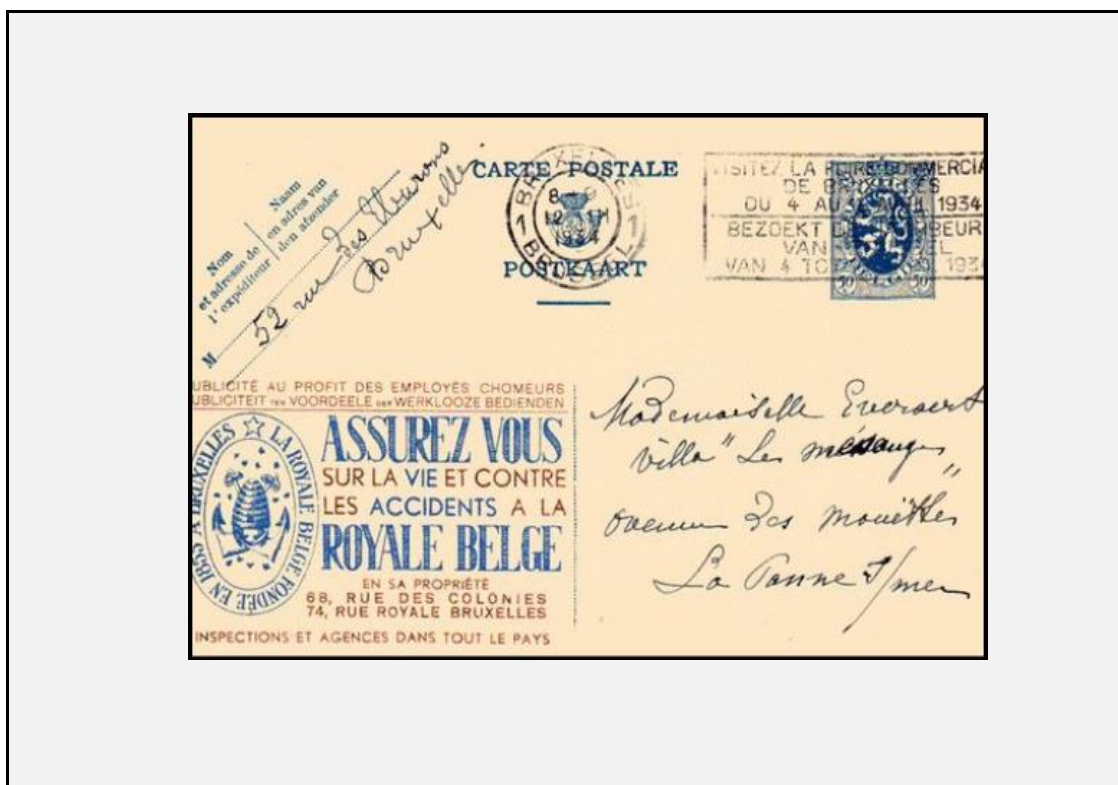 Nom
et adresse de
l'expéditeur
Naam
en adres van
den afzender
M
52 rue des
Bruxelles
CARTE POSTALE
POSTKAART
BRUXELLES
8-9
12 III
1934
1 1
BRUSSEL
VISITEZ LA FOIRE COMMERCIA
DE BRUXELLES
DU 4 AU AVRIL 1934
BEZOEKT DE BEUR
VAN EL
VAN 4 TO 193
50 50
UBLICITÉ AU PROFIT DES EMPLOYÉS CHOMEURS
UBLICITEIT TEN VOORDEELE DER WERKLOOZE BEDIENDEN
LA ROYALE BELGE FONDÉE EN 1853 A BRUXELLES
ASSUREZ VOUS
SUR LA VIE ET CONTRE
LES ACCIDENTS A LA
ROYALE BELGE
EN SA PROPRIÉTÉ
68, RUE DES COLONIES
74, RUE ROYALE BRUXELLES
INSPECTIONS ET AGENCES DANS TOUT LE PAYS
Mademoiselle Everaert
Villa "Les mésanges"
avenue des mouettes
La Panne s/mer